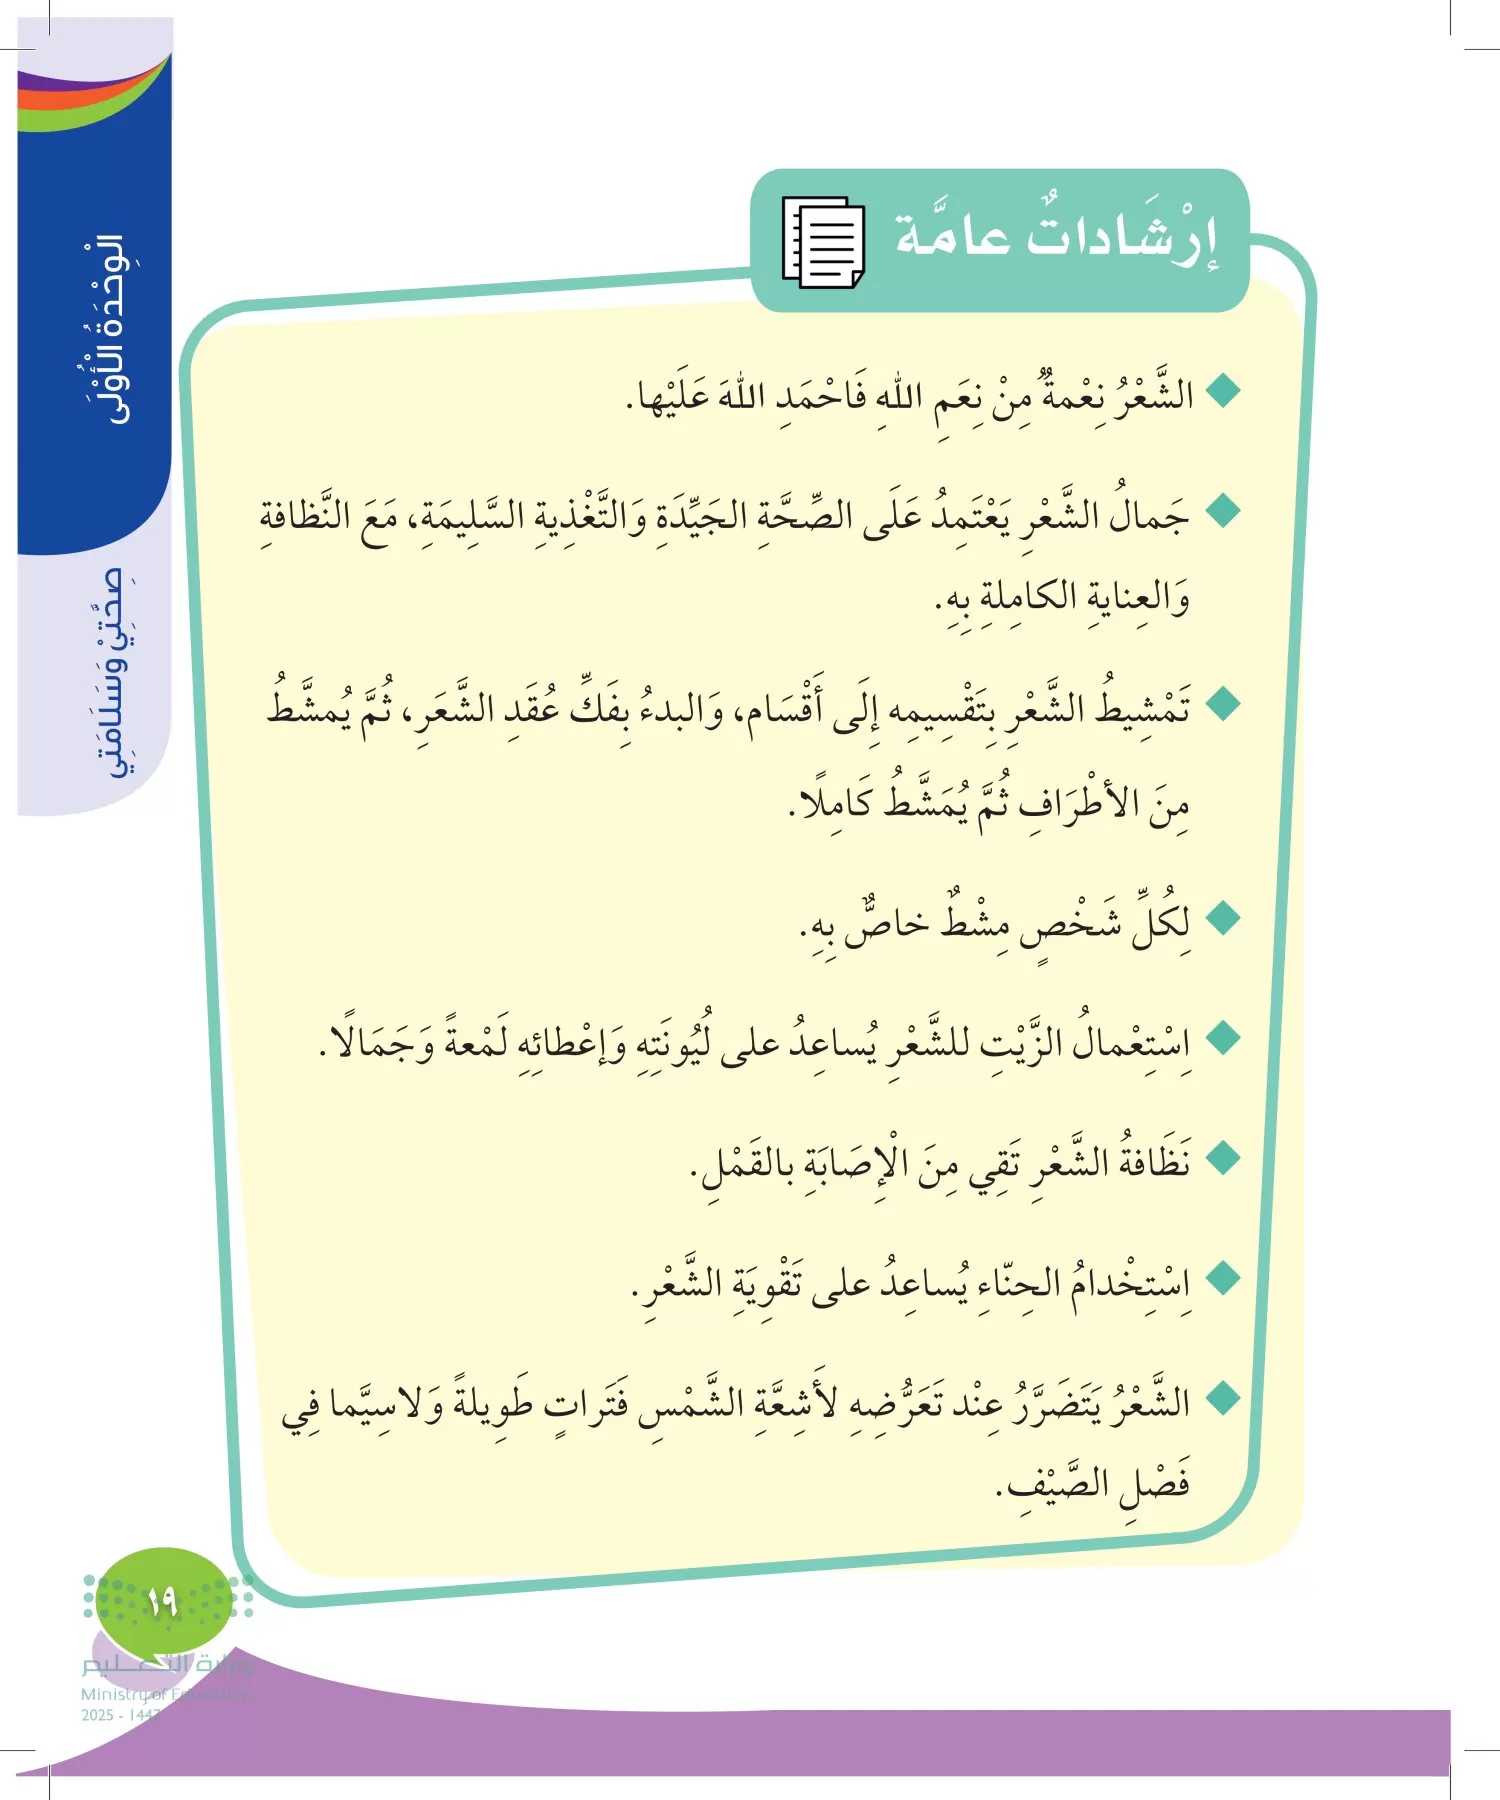 الْوِحْدَةُ الْأُوْلَى
صِحَّتِيْ وَسَلَامَتِي
إِرْشَادَاتٌ عامَّة
الشَّعْرُ نِعْمةٌ مِنْ نِعَمِ اللهِ فَاحْمَدِ اللهَ عَلَيْها.
جَمالُ الشَّعْرِ يَعْتَمِدُ عَلَى الصِّحَّةِ الجَيِّدَةِ وَالتَّغْذِيةِ السَّلِيمَةِ، مَعَ النَّظافةِ
وَالعِنايةِ الكامِلةِ بِهِ.
تَمْشِيطُ الشَّعْرِ بِتَقْسِيمِه إِلَى أَقْسَام، وَالبدءُ بِفَكِّ عُقَدِ الشَّعَرِ، ثُمَّ يُمشَّطُ
مِنَ الأطْرَافِ ثُمَّ يُمَشَّطُ كَامِلًا.
لِكُلِّ شَخْصٍ مِشْطٌ خاصٌّ بِهِ.
اِسْتِعْمالُ الزَّيْتِ للشَّعْرِ يُساعِدُ على لُيُونَتِهِ وَإعْطائِهِ لَمْعةً وَجَمَالًا.
نَظَافةُ الشَّعْرِ تَقِي مِنَ الْإِصَابَةِ بالقَمْلِ.
اِسْتِخْدامُ الحِنّاءِ يُساعِدُ على تَقْوِيَةِ الشَّعْرِ.
الشَّعْرُ يَتَضَرَّرُ عِنْد تَعَرُّضِهِ لأَشِعَّةِ الشَّمْسِ فَتَراتٍ طَوِيلةً وَلاسِيَّما فِي
فَصْلِ الصَّيْفِ.
١٩
وزارة التعليم
Ministry of Education
2025 - 1447